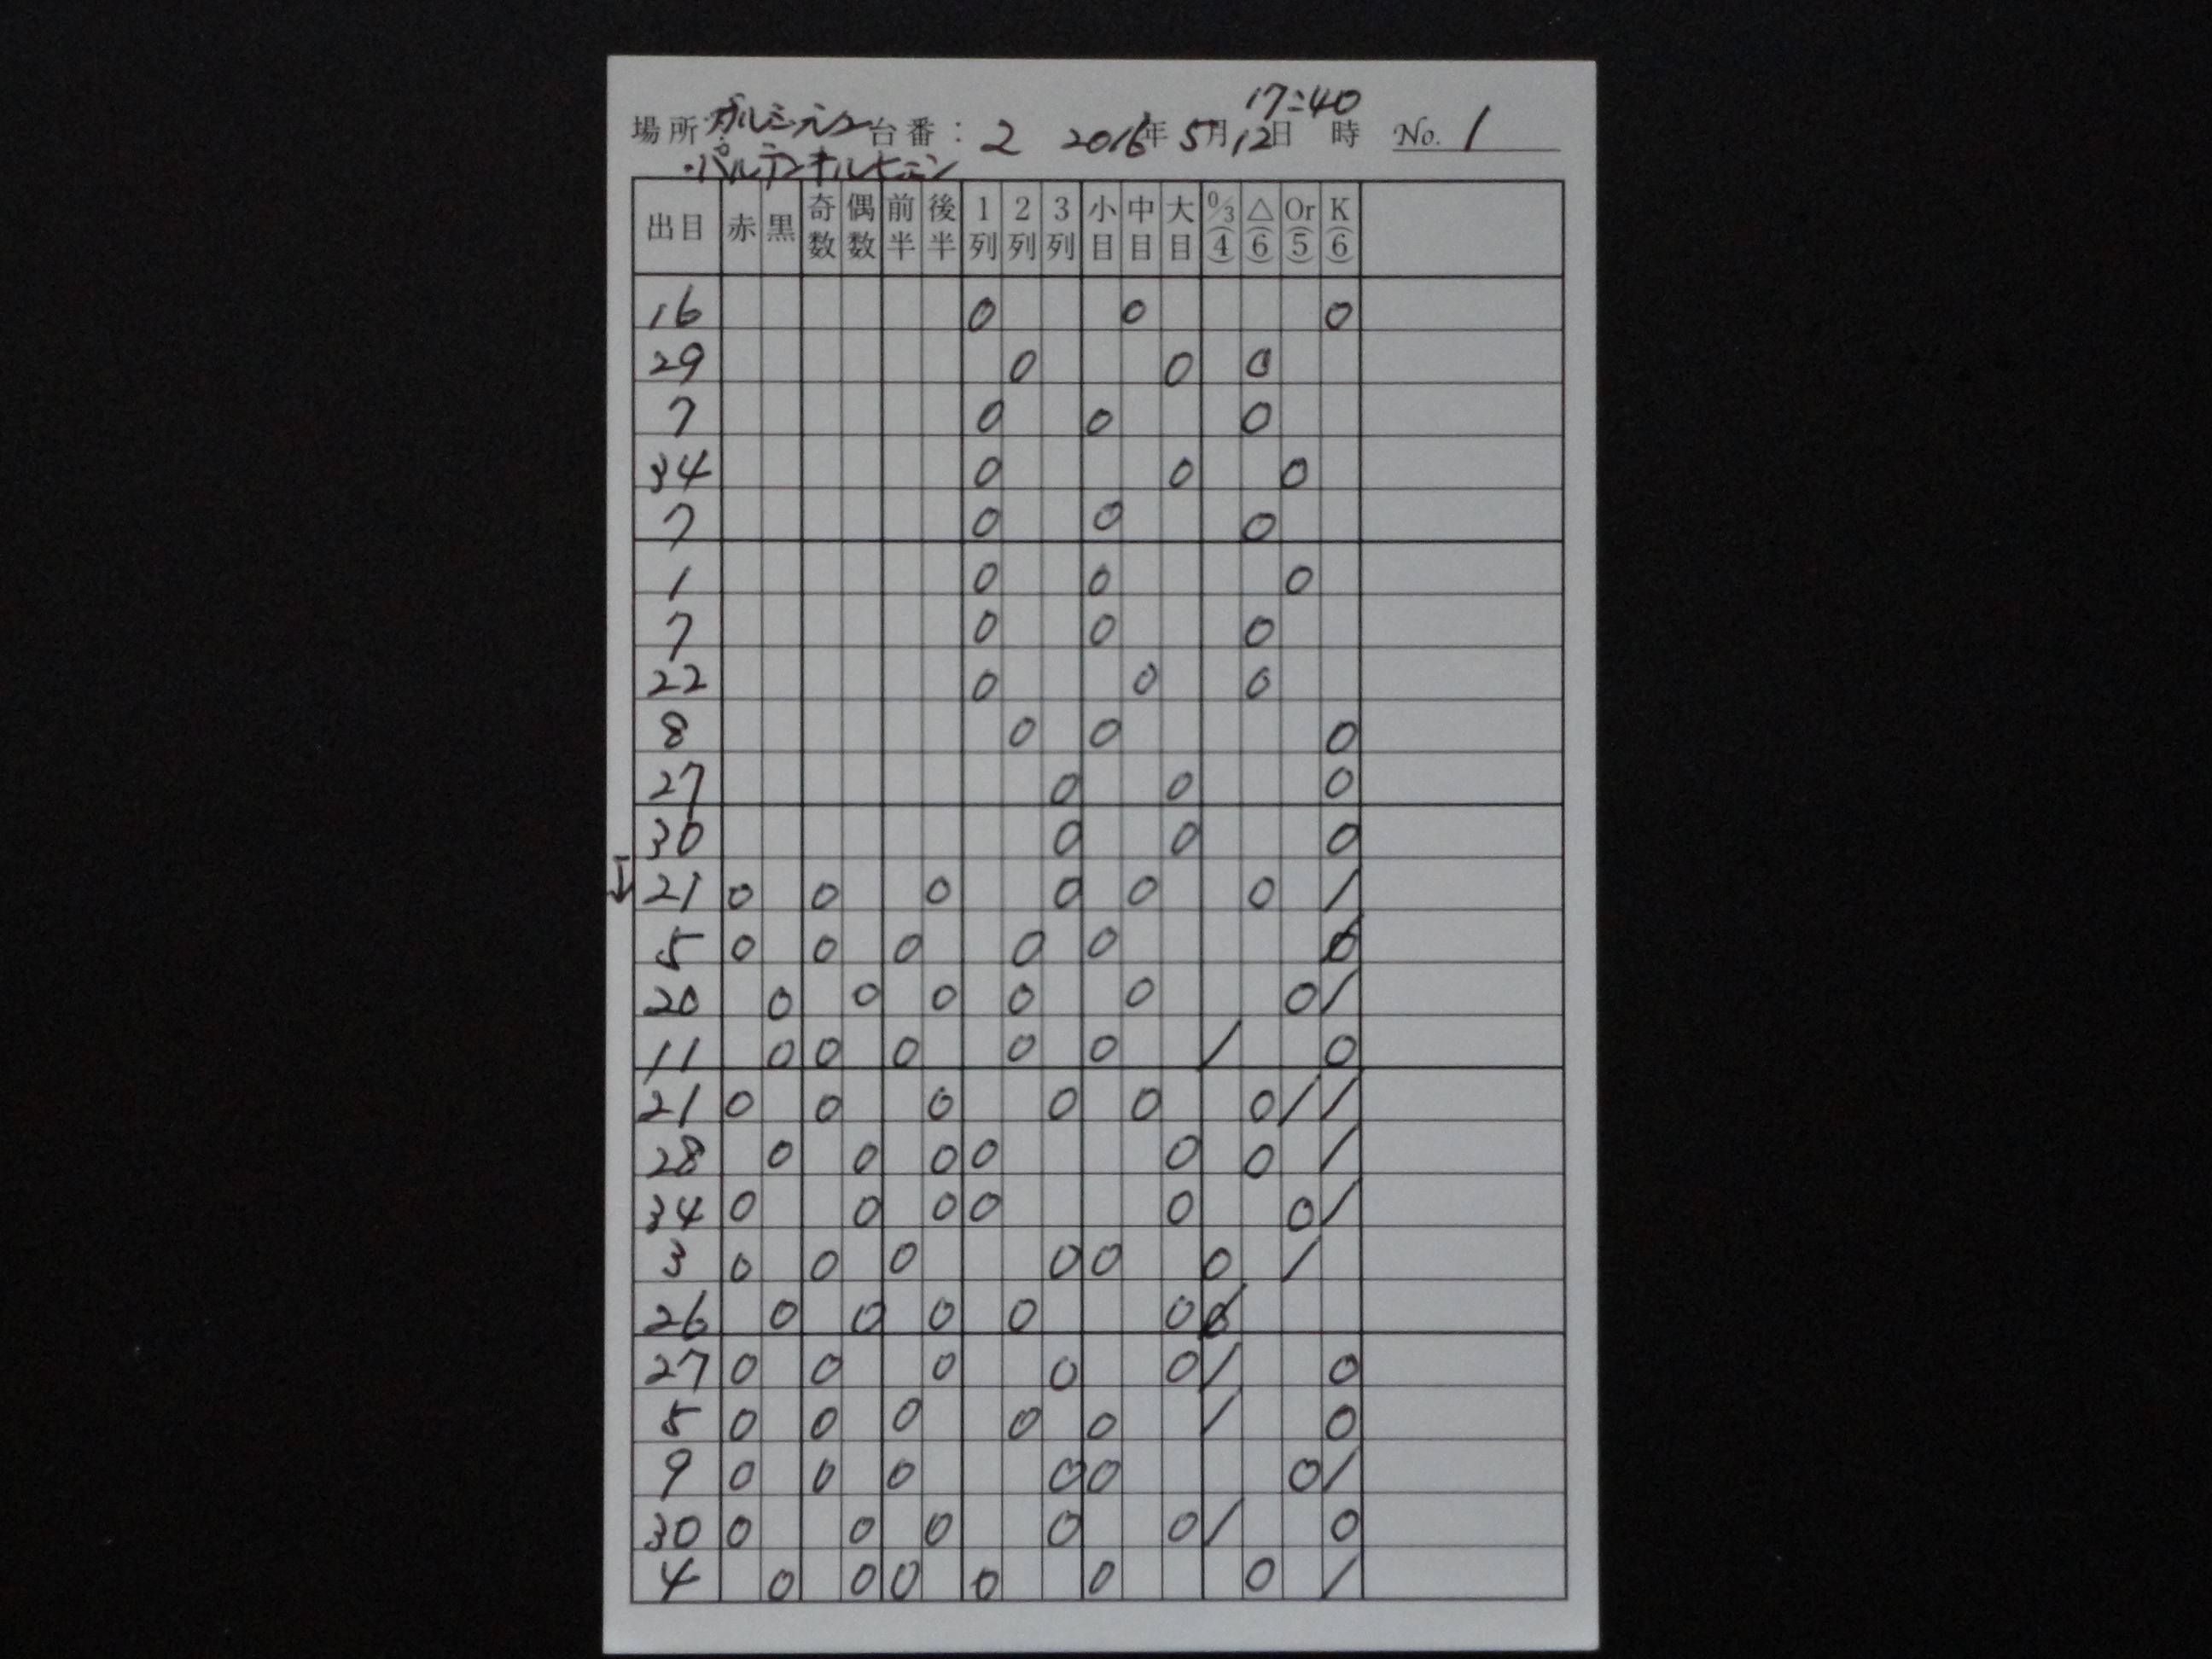 17:40
場所: ガルミッシュ 台番: 2 2016年 5月 12日 時 No. 1
・パルテンキルヒェン
出目 赤 黒 奇数 偶数 前半 後半 1列 2列 3列 小目 中目 大目 0/3(4) △(6) Or(5) K(6)
16 0 0 0
29 0 0 0
7 0 0 0
34 0 0 0
7 0 0 0
1 0 0 0
7 0 0 0
22 0 0 0
8 0 0 0
27 0 0 0
30 0 0 0
↓ 21 0 0 0 0 0 0 /
5 0 0 0 0 0 0
20 0 0 0 0 0 0 /
11 0 0 0 0 0 / 0
21 0 0 0 0 0 0 / /
28 0 0 0 0 0 0 /
34 0 0 0 0 0 0 /
3 0 0 0 0 0 0 /
26 0 0 0 0 0 0
27 0 0 0 0 0 / 0
5 0 0 0 0 0 / 0
9 0 0 0 0 0 0 /
30 0 0 0 0 0 / 0
4 0 0 0 0 0 0 /